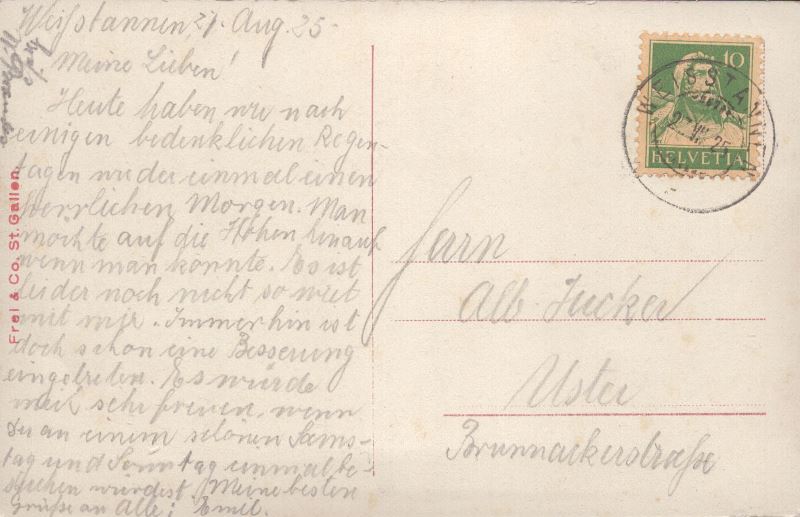 Weisstannen, 27. Aug. 25.
Meine Lieben!
Heute haben wir nach
einigen bedenklichen Regen-
tagen wieder einmal einen
herrlichen Morgen. Man
möchte auf die Höhen hinauf
wenn man könnte. Es ist
leider noch nicht so weit
mit mir. Immerhin ist
doch schon eine Besserung
eingetreten. Es würde
mich sehr freuen, wenn
Du an einem schönen Sams-
tag und Sonntag einmal be-
suchen würdest. Meine besten
Grüsse an Alle: Emil.
Frei & Co. St. Gallen.
10
HELVETIA
WEISSTANNEN
27. VIII. 25
Herrn
Alb. Jucker
Uster
Brunnackerstraße